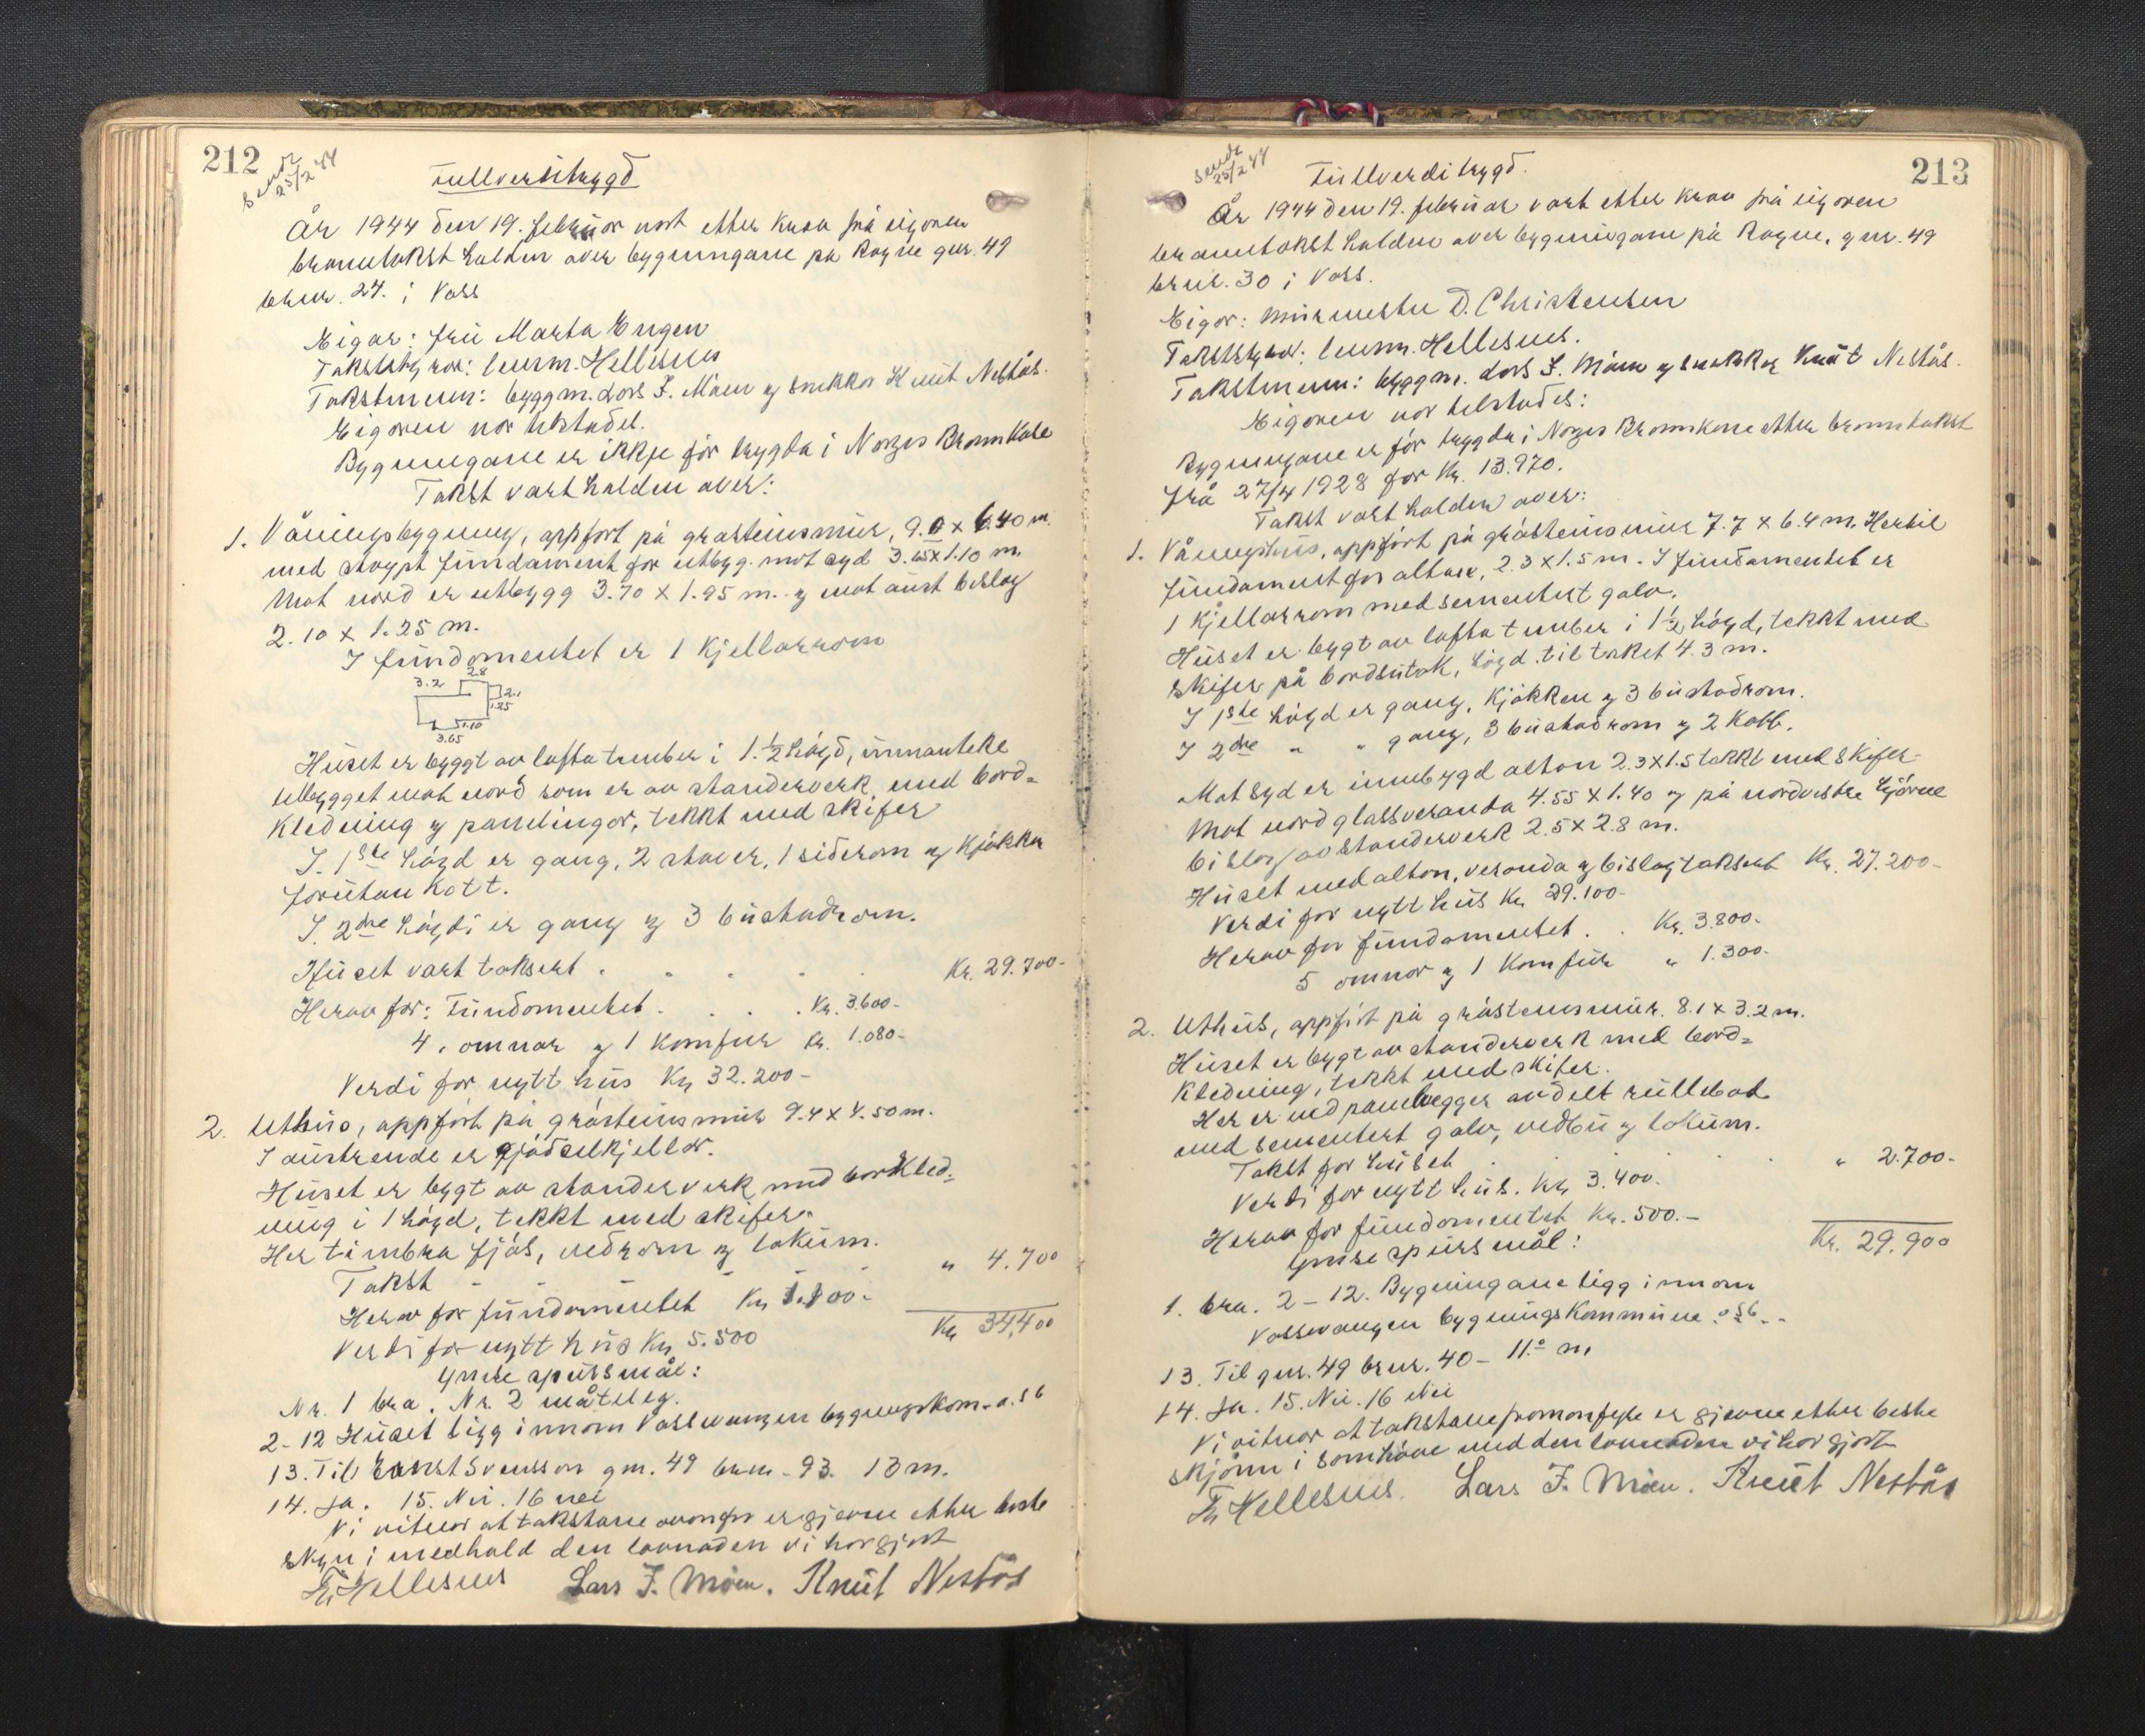 212
Sendt
25/2 44
Fullverditrygd
År 1944 den 19. februar vart etter krav frå eigaren
branntakst halden over bygningane på Rogne gnr. 49
brnr. 24. i Voss
Eigar: fru Marta Engen
Takststyrar: lensm. Hellesnes
Takstmenn: byggm. Lars I. Møen og snikkar Knut Nestås.
Eigaren var tilstades.
Bygningane er ikkje før trygda i Norges Brannkasse
Takst vart halden over:
1. Våningsbygning, oppført på gråsteinsmur, 9.0 x 6.40 m.
med støypt fundament for utbyg. mot syd 3.65 x 1.10 m.
Mot nord er utbygg 3.70 x 1.95 m. og mot aust bislag
2.10 x 1.25 m.
I fundamentet er 1 kjellarrom
3.2 2.8
2.1
1.25
1.10
3.65
Huset er byggt av lafta tømber i 1.½ høgd, unnanteke
utbygget mot nord som er av standerverk med bord-
kledning og panelingar, tekkt med skifer
I. 1ste høgd er gang, 2 stover, 1 siderom og kjøkken
forutan kott.
I. 2dre høgdi er gang og 3 bustadrom.
Huset vart taksert . . . . . Kr. 29.700-
Herav for: Fundamentet . . . . Kr. 3.600-
4. omnar og 1 komfur Kr. 1.080-
Verdi for nytt hus Kr. 32.200-
2. Uthus, oppført på gråsteinsmur 9.4 x 4.50 m.
I austrende er gjødselkjellar.
Huset er bygt av standerverk med bordkled-
ning i 1 høgd, tekkt med skifer.
Her timbra fjøs, vedrom og lokum.
Takst - - - - - " 4.700
Herav for fundamentet Kr. 1.100-
Kr. 34.400
Verdi for nytt hus Kr. 5.500
Ymse spursmål:
Nr. 1 bra. Nr. 2 måteleg.
2-12 Huset ligg innom Vossevangen bygningskom. o.s b
13. Til Ernst Svensson gnr. 49 brnr. 93. 13 m.
14. Ja. 15. Nei. 16 nei
Vi vitnar at takstane ovanfor er gjevne etter beste
skyn i medhald den lovnaden vi har gjort
Th Hellesnes Lars I. Møen. Knut Nestås
213
Sendt
25/2 44
Fullverditrygd.
År 1944 den 19. februar vart etter krav frå eigaren
branntakst halden over bygningane på Rogne, gnr. 49
brnr. 30 i Voss.
Eigar: murmester D. Christensen
Takststyrar: lensm. Hellesnes.
Takstmenn: byggm. Lars I. Møen og snikkar Knut Nestås.
Eigaren var tilstades:
Bygningane er før trygda i Norges Brannkasse etter branntakst
frå 27/4 1928 for Kr. 13.970.
Takst vart halden over:
1. Våningshus, oppført på gråsteinsmur 7.7 x 6.4 m. Hertil
fundament for altan, 2.3 x 1.5 m. I fundamentet er
1 kjellarrom med sementert golv.
Huset er bygt av lafta tømber i 1½ høgd, tekkt med
skifer på bordsutak, høgd til taket 4.3 m.
I 1ste høgd er gang, kjøkken og 3 bustadrom.
I 2dre " " gang, 3 bustadrom og 2 kott.
Mot syd er innbygd altan 2.3 x 1.5 tekkt med skifer
Mot nord glassveranda 4.55 x 1.40 og på nordvestre hjørne
bislag av standerverk 2.5 x 2.8 m.
Huset med altan, veranda og bislag taksert Kr. 27.200-
Verdi for nytt hus Kr. 29.100-
Herav for fundamentet . . Kr. 3.800-
5 omnar og 1 komfur " 1.300-
2. Uthus, oppført på gråsteinsmur. 8.1 x 3.2 m.
Huset er bygt av standerverk med bord-
kledning, tekkt med skifer.
Her er med panelvegger avdelt rullebod
med sementert golv, vedbu og lokum.
Takst for huset . . . . " 2.700-
Verdi for nytt hus. Kr. 3.400.
Herav for fundamentet Kr. 500.-
Kr. 29.900
Ymse spursmål:
1. bra. 2-12. Bygningane ligg innom
Vossevangen bygningskommune o s b. -
13. Til gnr. 49 brnr. 40 - 11.0 m
14. Ja. 15. Nei. 16 Nei
Vi vitnar at takstane framanfyre er gjevne etter beste
skjønn i samhøve med den lovnaden vi har gjort
Th Hellesnes. Lars I. Møen. Knut Nestås